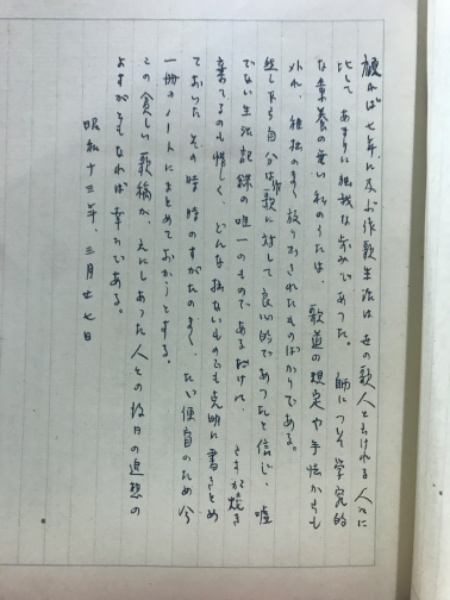 顧れば七年に及ぶ作歌生活は 世の歌人といはれる人々に
比して あまりに独我な歩みであつた。 師について学究的
な素養の無い私のうたは、 歌道の規定や手法からも
外れ、 独独のまゝ放りおされたものばかりである。
然し乍ら自分は作歌に対して良心的であつたと信じ、 嘘
でない生活記録の唯一のものであるだけに、 さすが焼き
棄てるのも惜しく、 どんな拙ないものでも克明に書きとめ
ておいた その時時のすがたのまゝ、 たい便宜のため今
一冊のノートにまとめておかうとする。
この貧しい歌稿が、 えにしあつた人々の後日の追想の
よすがともなれば 幸ひである。
昭和十三年、三月廿七日